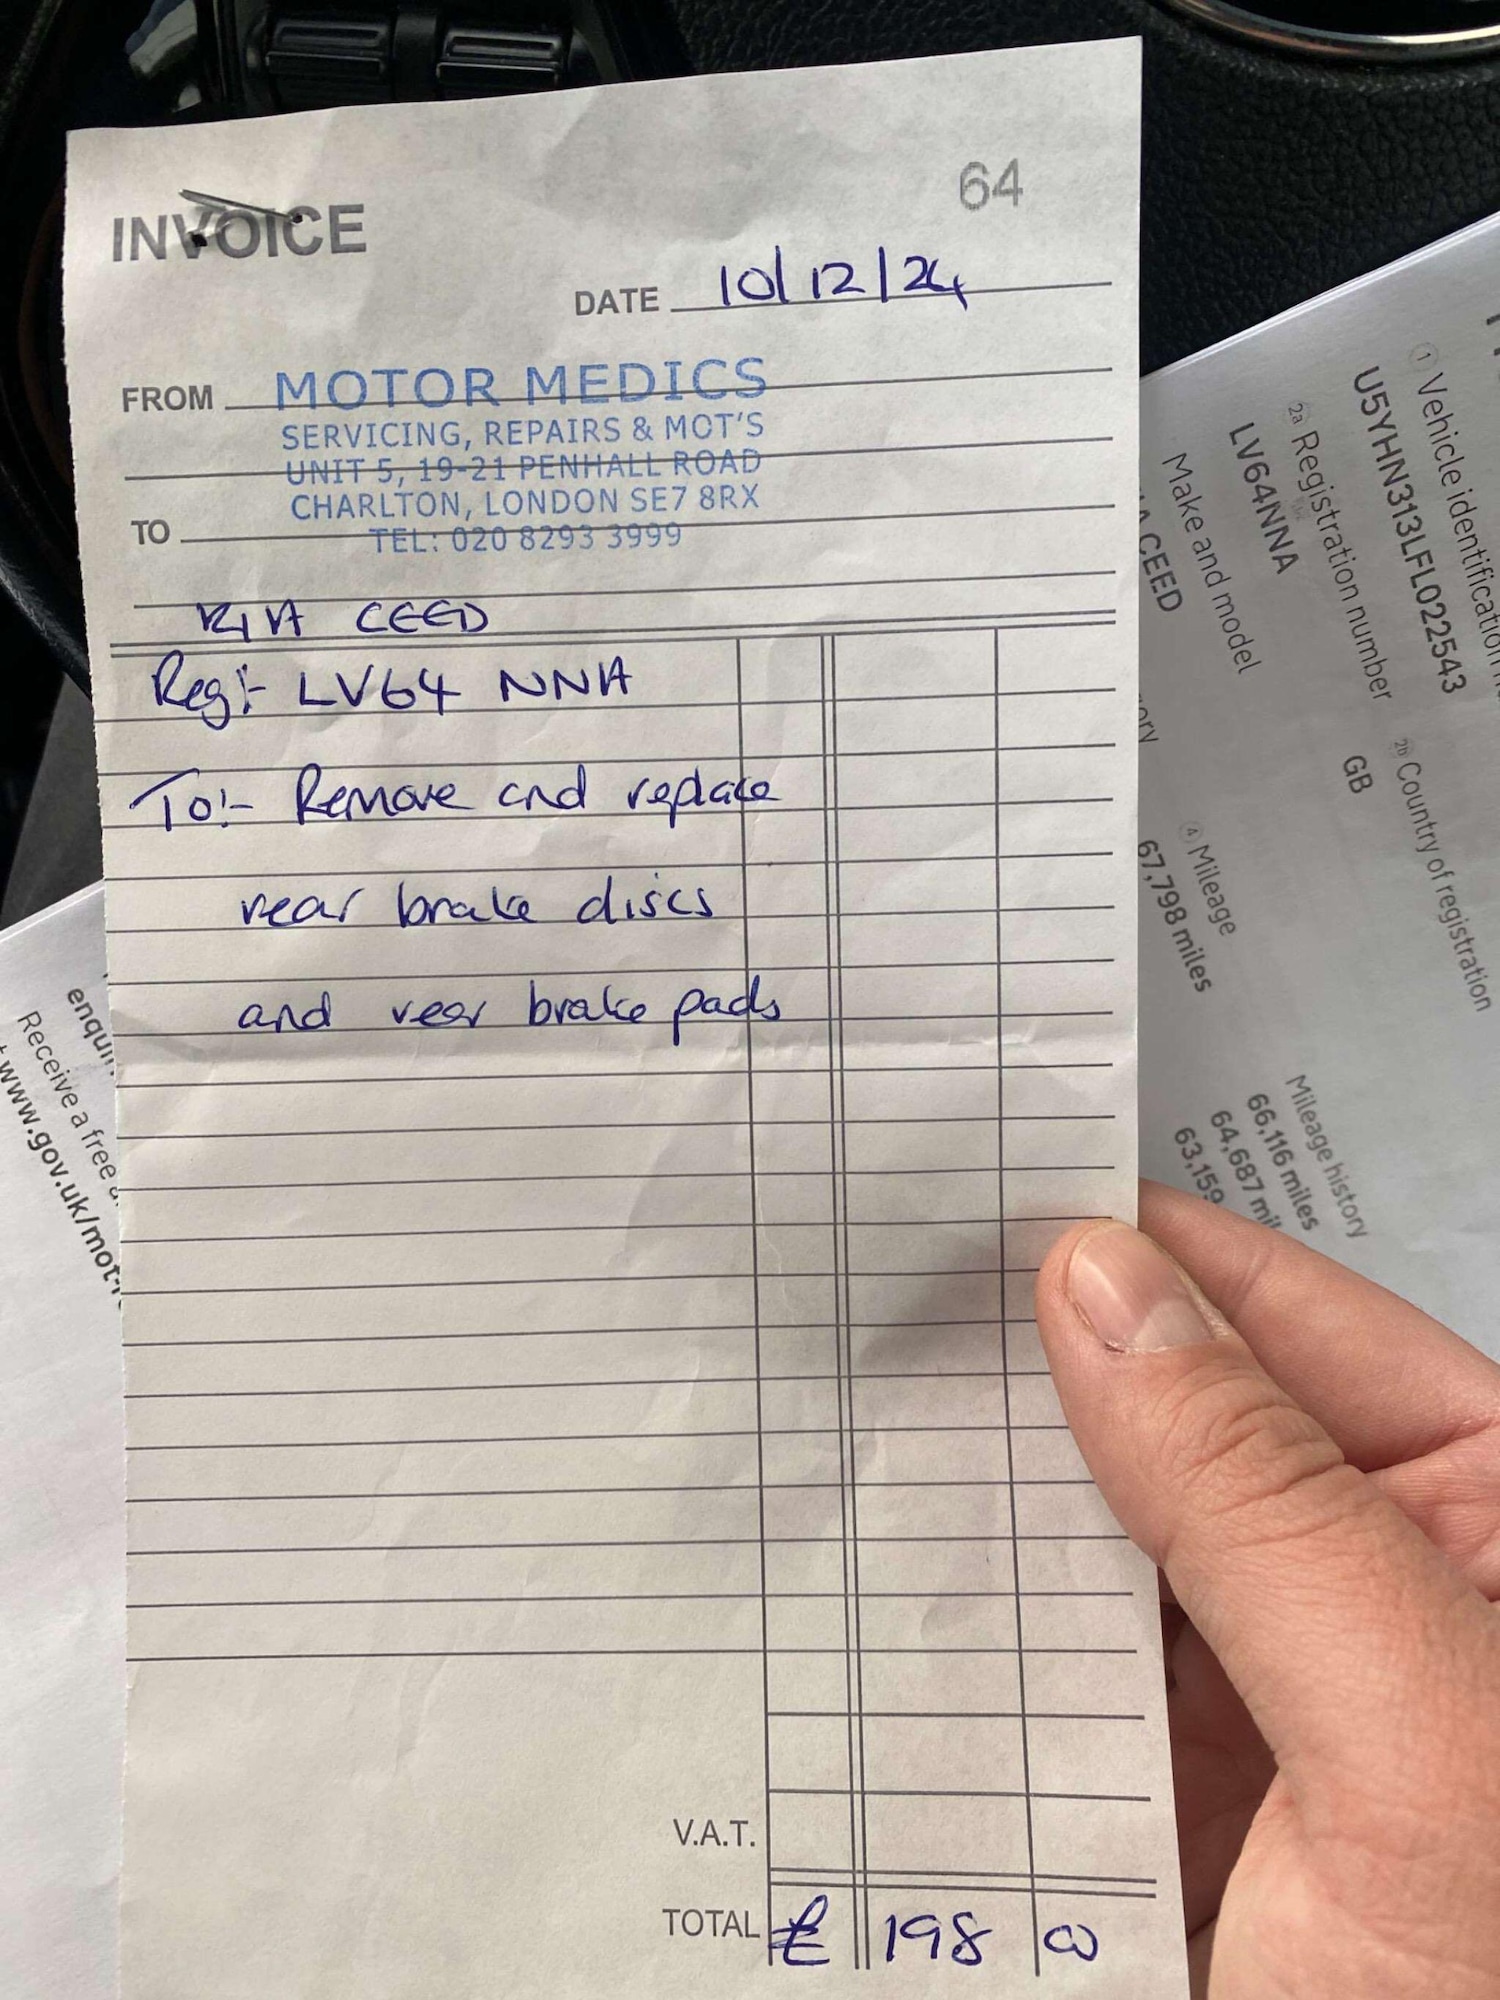 INVOICE
64
DATE 10/12/24
FROM MOTOR MEDICS
SERVICING, REPAIRS & MOT'S
UNIT 5, 19-21 PENHALL ROAD
CHARLTON, LONDON SE7 8RX
TO
TEL: 020 8293 3999
KIA CEED
Reg:- LV64 NNA
To:- Remove and replace
rear brake discs
and rear brake pads
V.A.T.
TOTAL £ 198 00
1 Vehicle identification
U5YHN313LFL022543
2a Registration number
LV64NNA
2b Country of registration
GB
Make and model
CEED
4 Mileage
67,798 miles
Mileage history
66,116 miles
64,687 mil
63,159
enqui
Receive a free
www.gov.uk/mot-